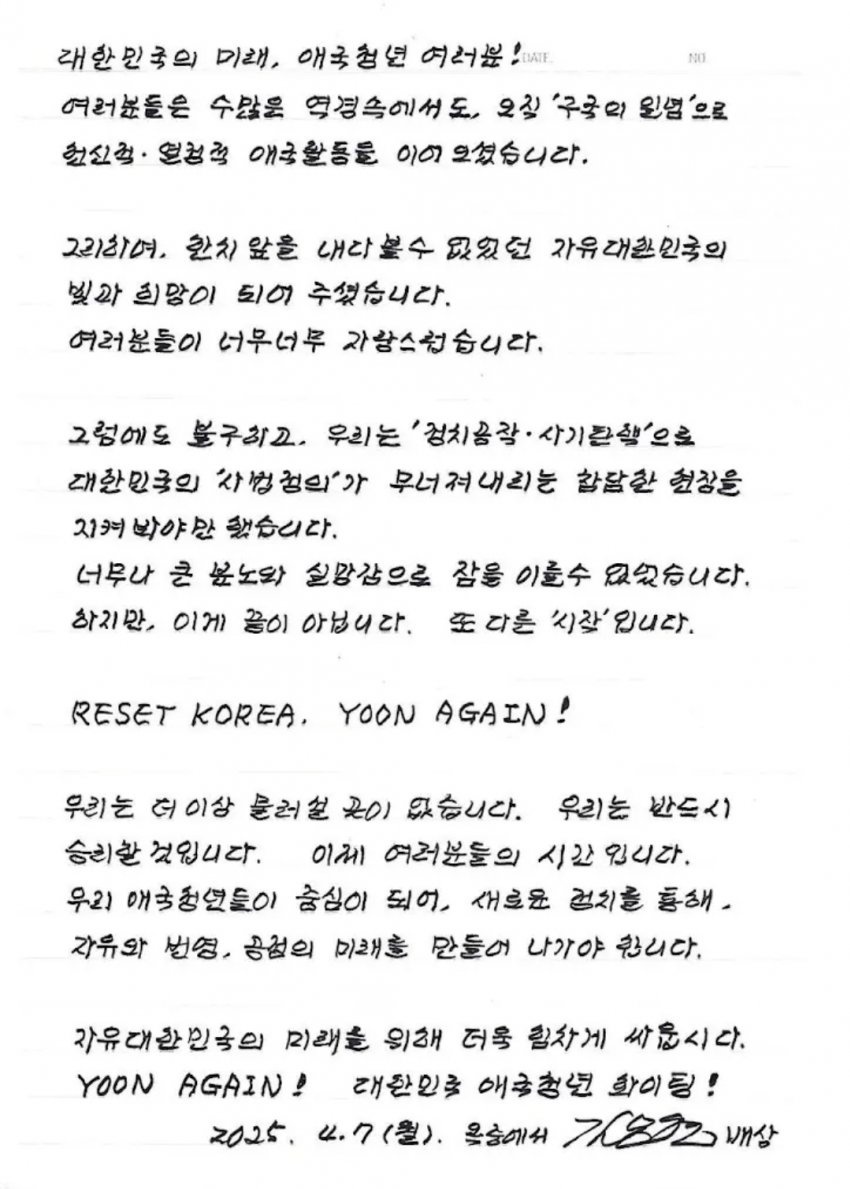 대한민국의 미래, 애국청년 여러분!
DATE. NO
여러분들은 수많은 역경속에서도, 오직 '구국의 일념'으로
헌신적·열정적 애국활동을 이어 오셨습니다.
그리하여, 한치 앞을 내다볼수 없었던 자유대한민국의
빛과 희망이 되어 주셨습니다.
여러분들이 너무너무 자랑스럽습니다.
그럼에도 불구하고, 우리는 '정치공작·사기탄핵'으로
대한민국의 '사법정의'가 무너져내리는 참담한 현장을
지켜봐야만 했습니다.
너무나 큰 분노와 실망감으로 잠을 이룰수 없었습니다.
하지만, 이게 끝이 아닙니다. 또 다른 '시작'입니다.
RESET KOREA. YOON AGAIN!
우리는 더 이상 물러설 곳이 없습니다. 우리는 반드시
승리할 것입니다. 이제 여러분들의 시간입니다.
우리 애국청년들이 중심이 되어, 새로운 정치를 통해,
자유와 번영, 공정의 미래를 만들어 나가야 합니다.
자유대한민국의 미래를 위해 더욱 힘차게 싸웁시다.
YOON AGAIN! 대한민국 애국청년 화이팅!
2025. 4.7(월). 옥중에서 배상